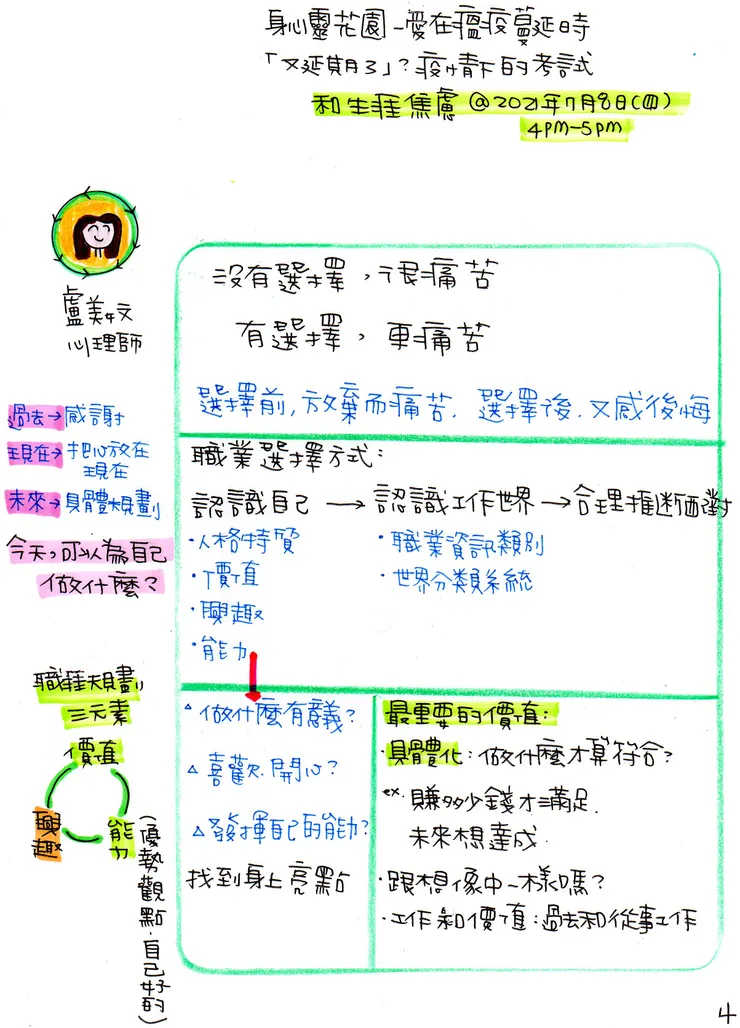 身心靈花園-愛在瘟疫蔓延時
「又延期了」？疫情下的考試
和生涯焦慮 @2021年7月8日(四)
4pm-5pm
盧美妏
心理師
沒有選擇，很痛苦
有選擇，更痛苦
選擇前，放棄而痛苦．選擇後．又感後悔
過去→感謝
現在→把心放在
現在
未來→具體規劃
今天，可以為自己
做什麼？
職業選擇方式：
認識自己 → 認識工作世界 → 合理推斷面對
・人格特質
・價值
・興趣
・能力
・職業資訊類別
・世界分類系統
職涯規劃
三元素
價值
興趣
能力
(優勢觀點．自己好的)
△ 做什麼有意義？
△ 喜歡．開心？
△ 發揮自己的能力？
找到身上亮點
最重要的價值：
・具體化：做什麼才算符合？
ex. 賺多少錢才滿足．
未來想達成．
・跟想像中一樣嗎？
・工作和價值：過去和從事工作
4